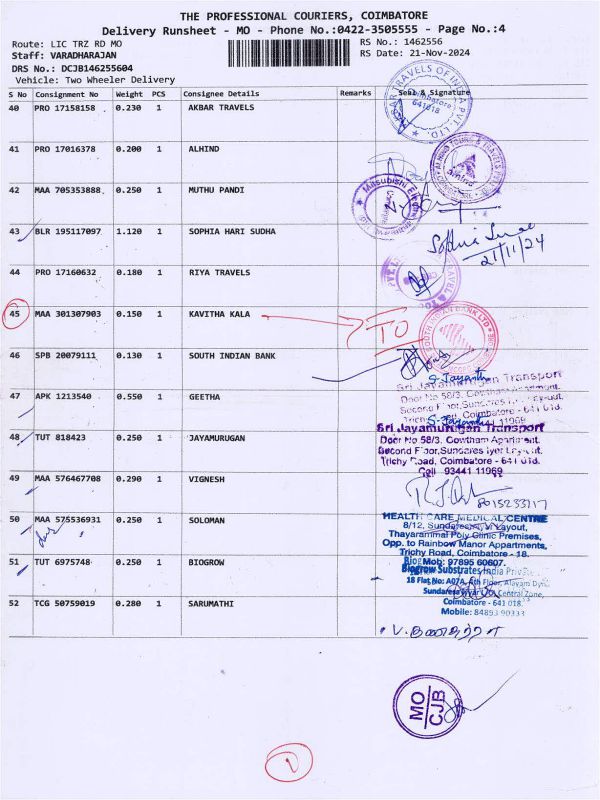 THE PROFESSIONAL COURIERS, COIMBATORE
Delivery Runsheet - MO - Phone No.:0422-3505555 - Page No.:4
Route: LIC TRZ RD MO
RS No.: 1462556
Staff: VARADHARAJAN
RS Date: 21-Nov-2024
DRS No.: DCJB146255604
Vehicle: Two Wheeler Delivery
S No Consignment No Weight PCS Consignee Details Remarks Seal & Signature
40 PRO 17158158 0.230 1 AKBAR TRAVELS
Coimbatore
641018
41 PRO 17016378 0.200 1 ALHIND
42 MAA 705353888 0.250 1 MUTHU PANDI
43 BLR 195117097 1.120 1 SOPHIA HARI SUDHA
21/11/24
44 PRO 17160632 0.180 1 RIYA TRAVELS
45 MAA 301307903 0.150 1 KAVITHA KALA TO
46 SPB 20079111 0.130 1 SOUTH INDIAN BANK
47 APK 1213540 0.550 1 GEETHA
Sri Jayamurugan Transport
Door No 58/3, Gowtham Apartment,
Coimbatore - 641 018.
48 TUT 818423 0.250 1 JAYAMURUGAN
Sri Jayamurugan Transport
Door No 58/3, Gowtham Apartment,
Second Floor,
Trichy Road, Coimbatore - 641 018.
Cell 93441 11969
49 MAA 576467708 0.290 1 VIGNESH
50 MAA 575536931 0.250 1 SOLOMAN
HEALTH CARE MEDICAL CENTRE
8/12, Layout,
Thayarammal Poly Clinic Premises,
Opp. to Rainbow Manor Appartments,
Trichy Road, Coimbatore - 18.
Mob: 97895 60607.
51 TUT 6975748 0.250 1 BIOGROW
Biogrow Substrates India Private
Coimbatore - 641 018.
Mobile: 84893 90333
52 TCG 50759019 0.280 1 SARUMATHI
MO
CJB